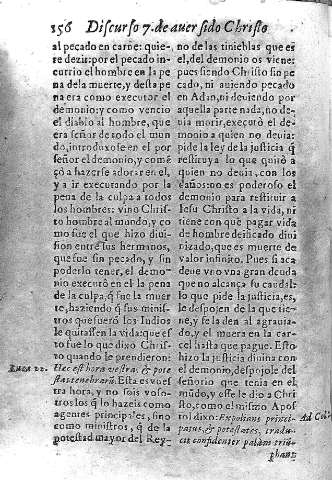 156 Discurso 7. de auer sido Christo
al pecado en carne: quie-
re dezir: por el pecado in-
currio el hombre en la pe
na de la muerte, y desta pe
na era como executor el
demonio; y como vencio
el diablo al hombre, que
era señor de todo el mun
do, introduxose en el por
señor el demonio, y comẽ
çò a hazerse adorar en el,
y a ir executando por la
pena de la culpa a todos
los hombres: vino Chris-
to hombre al mundo, y co
mo fue el que hizo diui-
sion entre sus hermanos,
que fue sin pecado, y sin
poderlo tener, el demo-
nio executò en el la pena
de la culpa, q̃ fue la muer
te, haziendo q̃ sus minis-
tros que fuerõ los Iudios
le quitassen la vida: que es-
so fue lo que dixo Christo
quando le prendieron:
Luca 22. Hæc est hora vestra, & pote
stas tenebrarũ. Esta es vues
tra hora, y no sois voso-
tros los q̃ lo hazeis como
agentes principales, sino
como ministros, q̃ de la
potestad mayor del Rey-
no de las tinieblas que es
el, del demonio os viene:
pues siendo Christo sin pe
cado, ni auiendo pecado
en Adan, ni deuiendo por
aquella parte nada, no de-
uia morir, executò el de-
monio a quien no deuia:
pide la ley de la justicia q̃
restituya lo que quitò a
quien no deuia, con los
daños: no es poderoso el
demonio para restituir a
Iesu Christo a la vida, ni
tiene con què pagar vida
de hombre deificado diui
nizado, que es muerte de
valor infinito. Pues si aca
deue vno vna gran deuda
que no alcança su caudal:
lo que pide la justicia, es,
le despojen de la que tie-
ne, y se la den al agrauia-
do, y el muera en la car-
cel hasta que pague. Esto
hizo la justicia diuina con
el demonio, despojole del
señorio que tenia en el
mũdo, y esse le dio a Chris
to, como el mismo Apos-
tol dixo: Expolians princi- Ad Col.
patus, & potestates, tradu-
cit confidenter palàm triũ-
phans